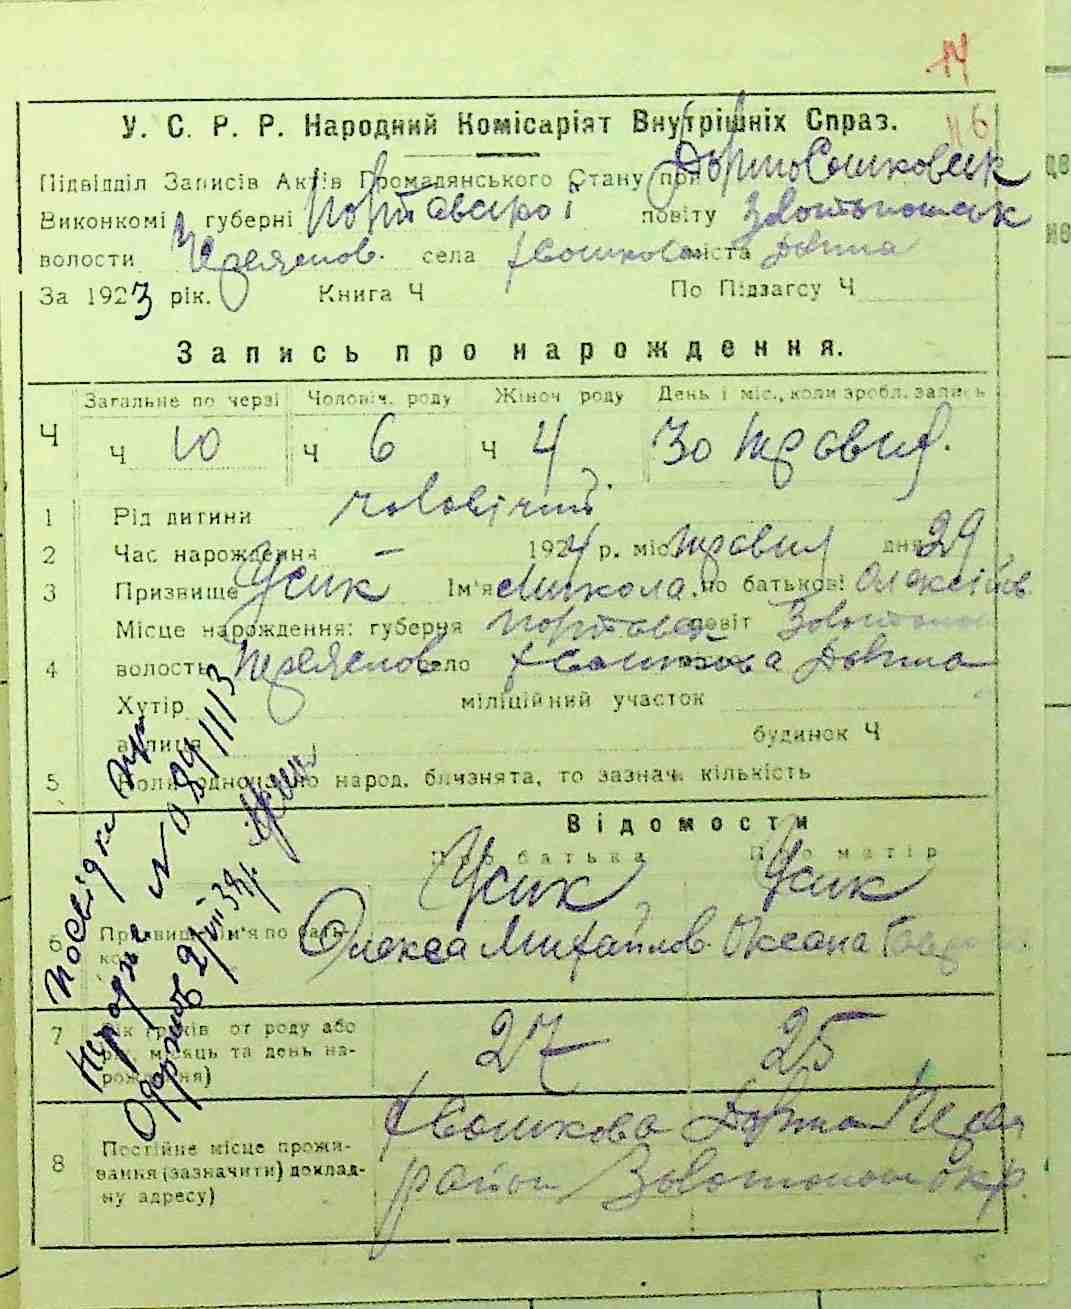 14
116
У. С. Р. Р. Народний Комісаріят Внутрішніх Спраз.
Підвідділ Записів Актів Громадянського Стану при
Виконкомі губерні Полтавської повіту Золотоношськ
волости Переяслов. села міста
За 1923 рік. Книга Ч По Підзагсу Ч
Запись про народження.
Загальне по черзі Чоловіч. роду Жіноч роду День і міс., коли зробл. запись
Ч Ч 10 Ч 6 Ч 4 30 Травня.
1 Рід дитини чоловічий
2 Час народження – 1924 р. міс Травня дня 29
3 Призвище Усик Ім'я Микола по батькові Олексійов
Місце народження: губерня Полтавск повіт Золотонош
4 волость Переяслов село
Хутір міліційний участок
вулиця будинок Ч
5 Коли одночасно народ. близнята, то зазнач. кількість
Відомости
Про батька Про матір
Усик Усик
6 Призвище, ім'я по бать-
Олекса Михайлов. Оксана
7 рік (років от роду або
рік, місяць та день на-
родження)
27 25
8 Постійне місце прожи-
вання (зазначити) доклад-
ну адресу)
район Золотонош окр.